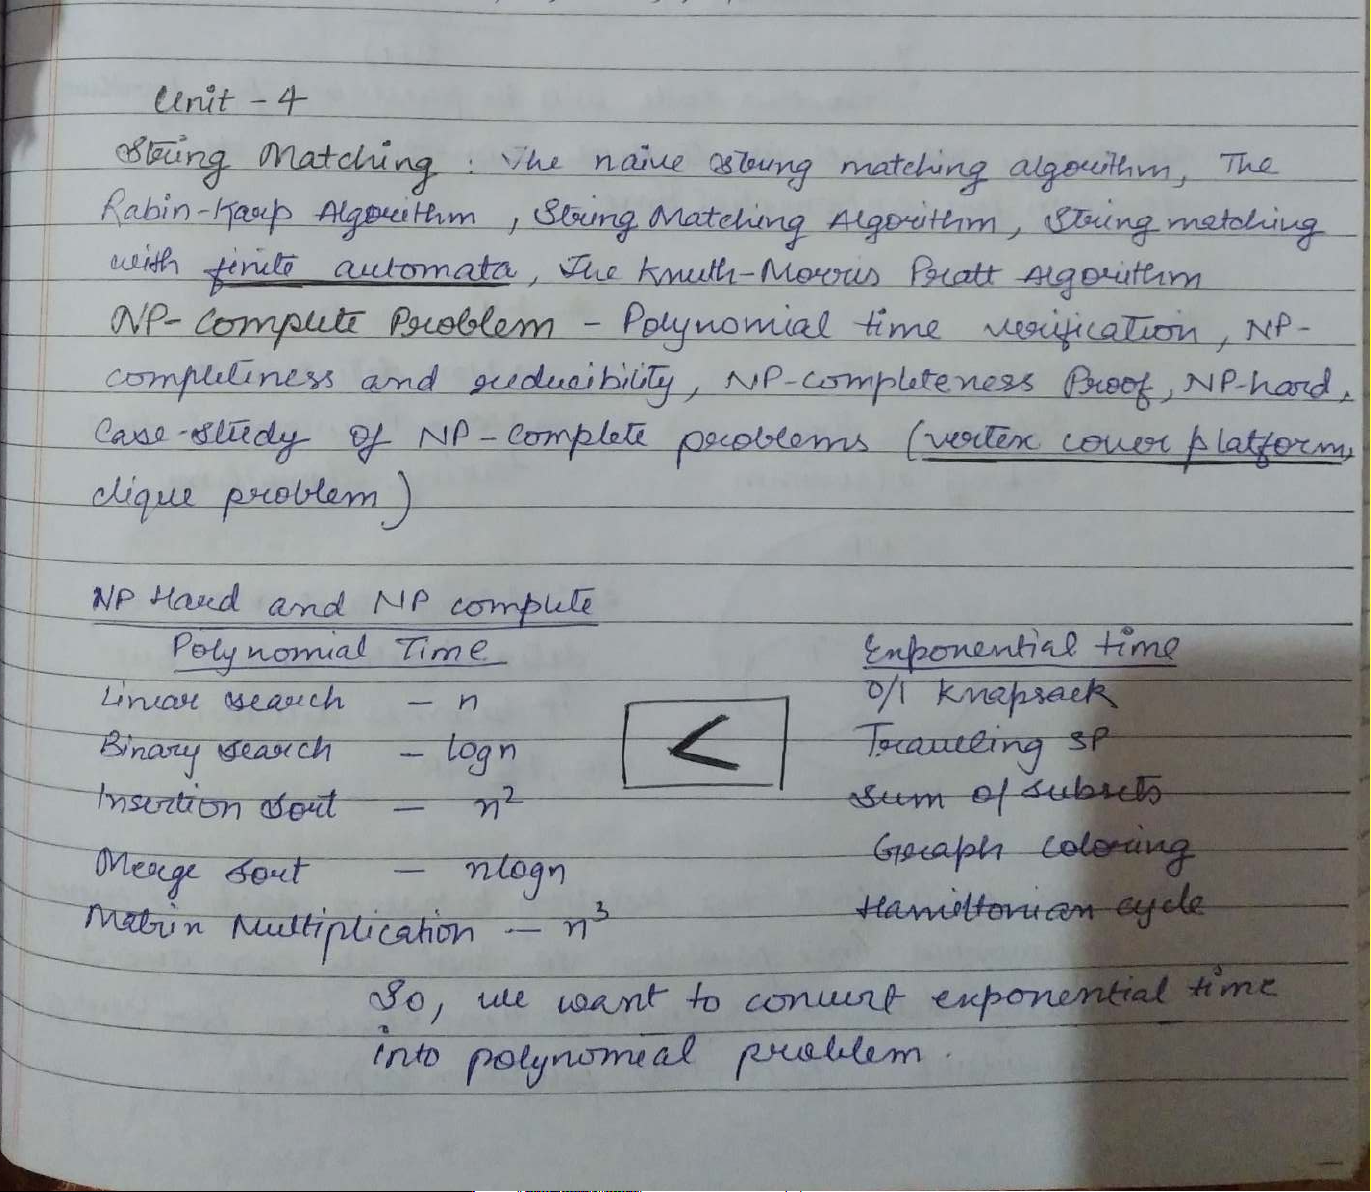 Unit - 4
String Matching : The naive string matching algorithm, The
Rabin-Karp Algorithm , String Matching Algorithm, String matching
with finite automata, The Knuth-Morris Pratt Algorithm
NP-Complete Problem - Polynomial time verification, NP-
completiness and reducibility, NP-completeness Proof, NP-hard,
Case-study of NP-Complete problems (vertex cover platform,
clique problem)
NP Hard and NP complete
Polynomial Time Exponential time
Linear search - n 0/1 Knapsack
Binary search - logn < Traveling SP
Insertion Sort - n² Sum of Subsets
Merge Sort - nlogn Graph coloring
Matrix Multiplication - n³ Hamiltonian cycle
So, we want to convert exponential time
into polynomial problem.